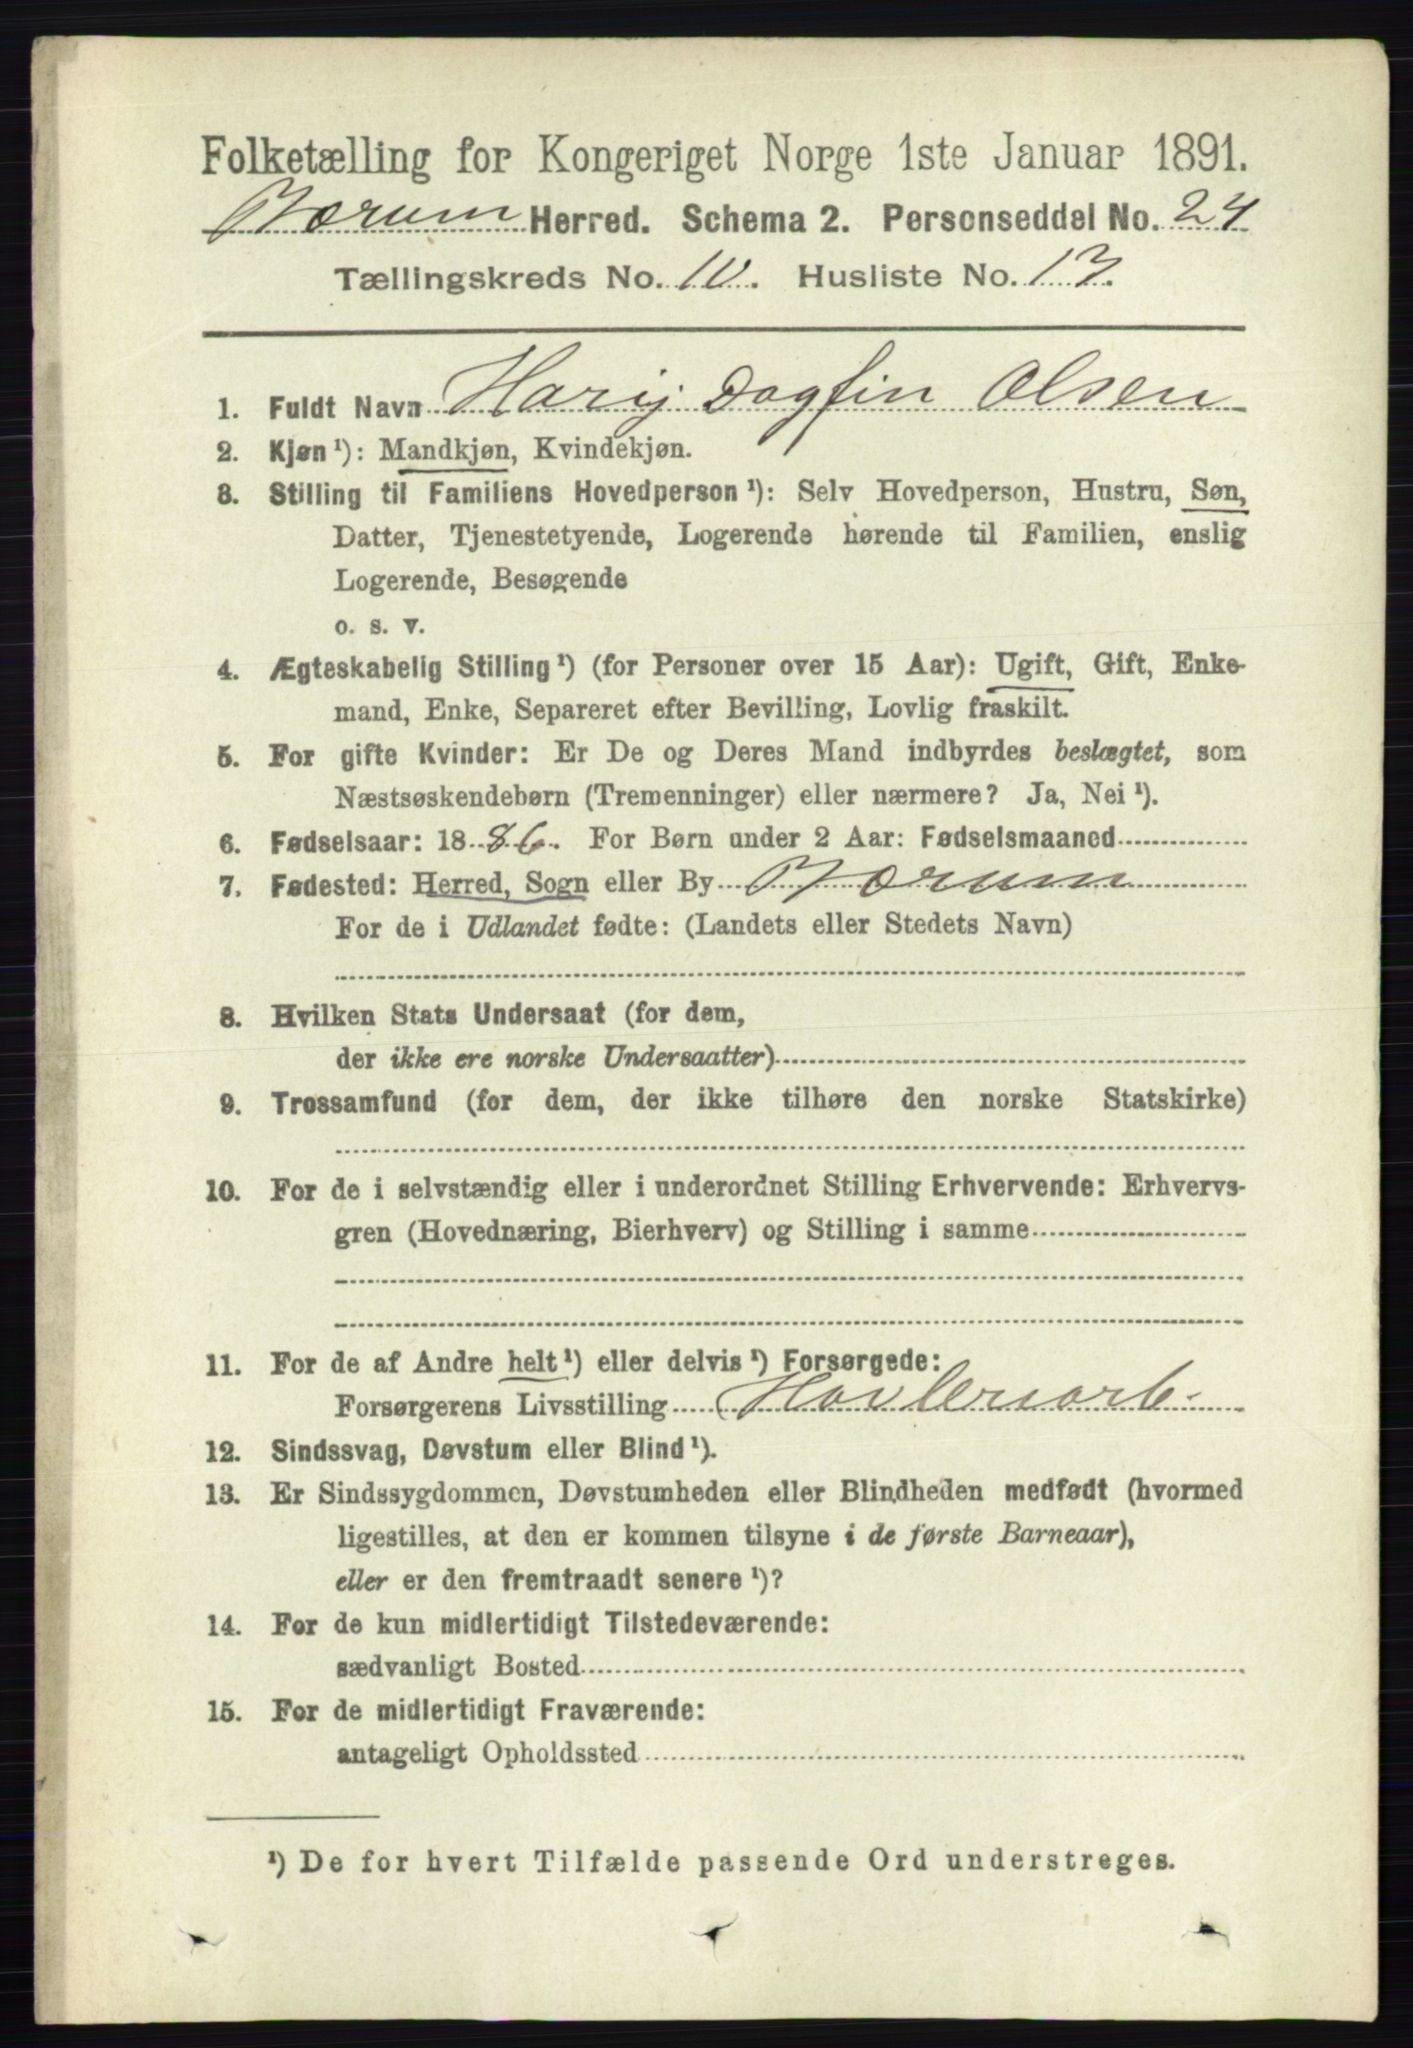 Folketælling for Kongeriget Norge 1ste Januar 1891.
Bærum Herred. Schema 2. Personseddel No. 24
Tællingskreds No. 10. Husliste No. 13.
1. Fuldt Navn Harij Dagfin Olsen
2. Kjøn ¹): Mandkjøn, Kvindekjøn.
3. Stilling til Familiens Hovedperson ¹): Selv Hovedperson, Hustru, Søn,
Datter, Tjenestetyende, Logerende hørende til Familien, enslig
Logerende, Besøgende
o. s. v.
4. Ægteskabelig Stilling ¹) (for Personer over 15 Aar): Ugift, Gift, Enke-
mand, Enke, Separeret efter Bevilling, Lovlig fraskilt.
5. For gifte Kvinder: Er De og Deres Mand indbyrdes beslægtet, som
Næstsøskendebørn (Tremenninger) eller nærmere? Ja, Nei ¹).
6. Fødselsaar: 1886. For Børn under 2 Aar: Fødselsmaaned
7. Fødested: Herred, Sogn eller By Bærum
For de i Udlandet fødte: (Landets eller Stedets Navn)
8. Hvilken Stats Undersaat (for dem,
der ikke ere norske Undersaatter)
9. Trossamfund (for dem, der ikke tilhøre den norske Statskirke)
10. For de i selvstændig eller i underordnet Stilling Erhvervende: Erhvervs-
gren (Hovednæring, Bierhverv) og Stilling i samme
11. For de af Andre helt ¹) eller delvis ¹) Forsørgede:
Forsørgerens Livsstilling
12. Sindssvag, Døvstum eller Blind ¹).
13. Er Sindssygdommen, Døvstumheden eller Blindheden medfødt (hvormed
ligestilles, at den er kommen tilsyne i de første Barneaar),
eller er den fremtraadt senere ¹)?
14. For de kun midlertidigt Tilstedeværende:
sædvanligt Bosted
15. For de midlertidigt Fraværende:
antageligt Opholdssted
¹) De for hvert Tilfælde passende Ord understreges.